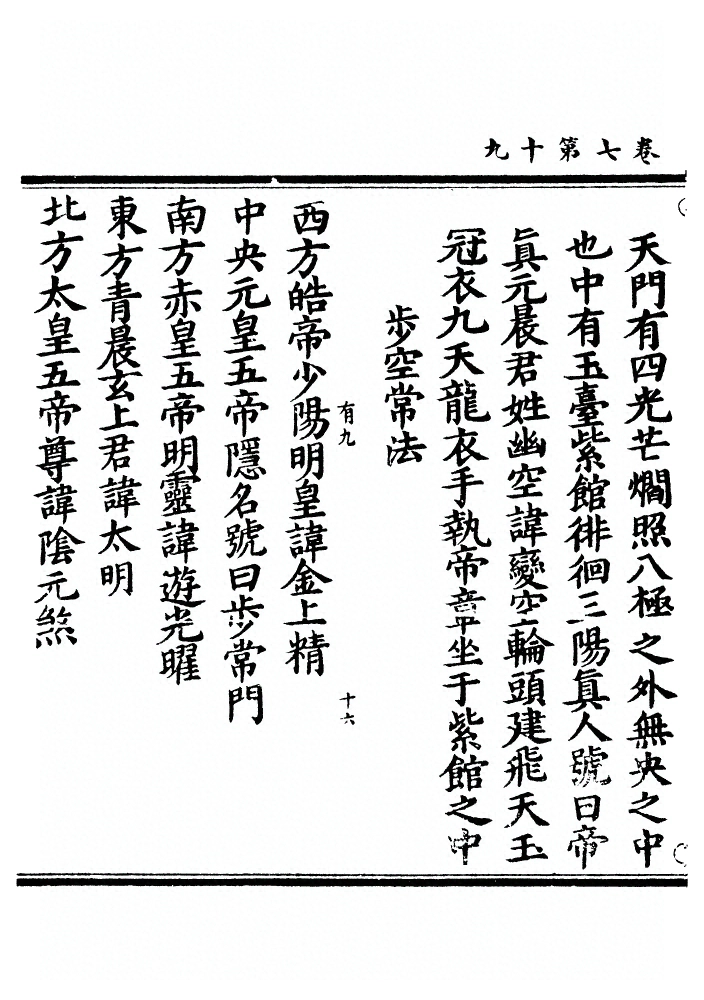 卷七第十九
天門有四光芒爓照八極之外無央之中
也中有玉臺紫館徘徊三陽眞人號曰帝
眞元晨君姓幽空諱變空輪頭建飛天玉
冠衣九天龍衣手執帝章坐于紫館之中
步空常法
有九
十六
西方皓帝少陽明皇諱金上精
中央元皇五帝隱名號曰步常門
南方赤皇五帝明靈諱遊光曜
東方青晨玄上君諱太明
北方太皇五帝尊諱陰元煞